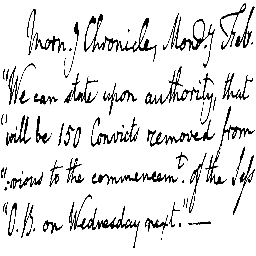 Morn.g Chronicle, Mond.y Feb.
"We can state upon authority, that
"will be 150 Convicts removed from
":vious to the commencem.t of the Sess
"O.B. on Wednesday next." —